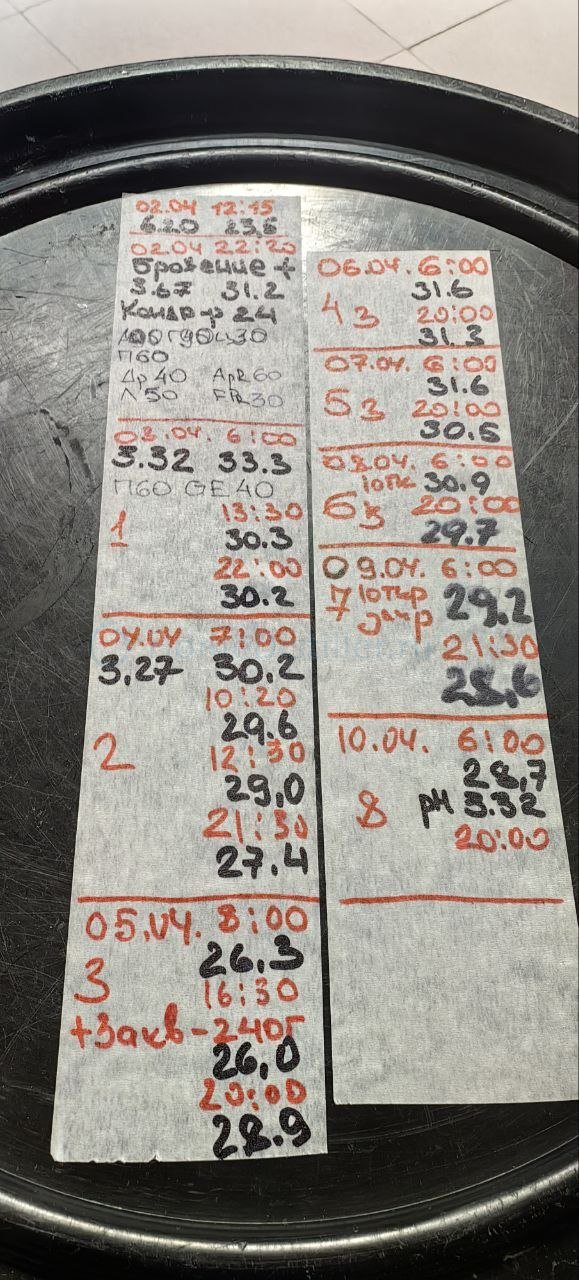 02.04 12:15
6.20 23,6
02.04 22:20
Брожение +
3.67 31.2
Кондр-р 24
П60
Др 40 Ар2 60
Л 50 FR 30
03.04. 6:00
3.32 33.3
П60 GE 40
13:30
1
30.3
22:00
30.2
04.04 7:00
3,27 30.2
10:20
29.6
2 12:30
29,0
21:30
27.4
05.04. 8:00
26.3
3 16:30
+Закв-240г
26,0
20:00
28.9
06.04. 6:00
31.6
4 з 20:00
31.3
07.04. 6:00
31.6
5 з 20:00
30.5
08.04. 6:00
30.9
6 з 20:00
29.7
09.04. 6:00
7 29.2
21:30
28,6
10.04. 6:00
28,7
8 pH 3.32
20:00